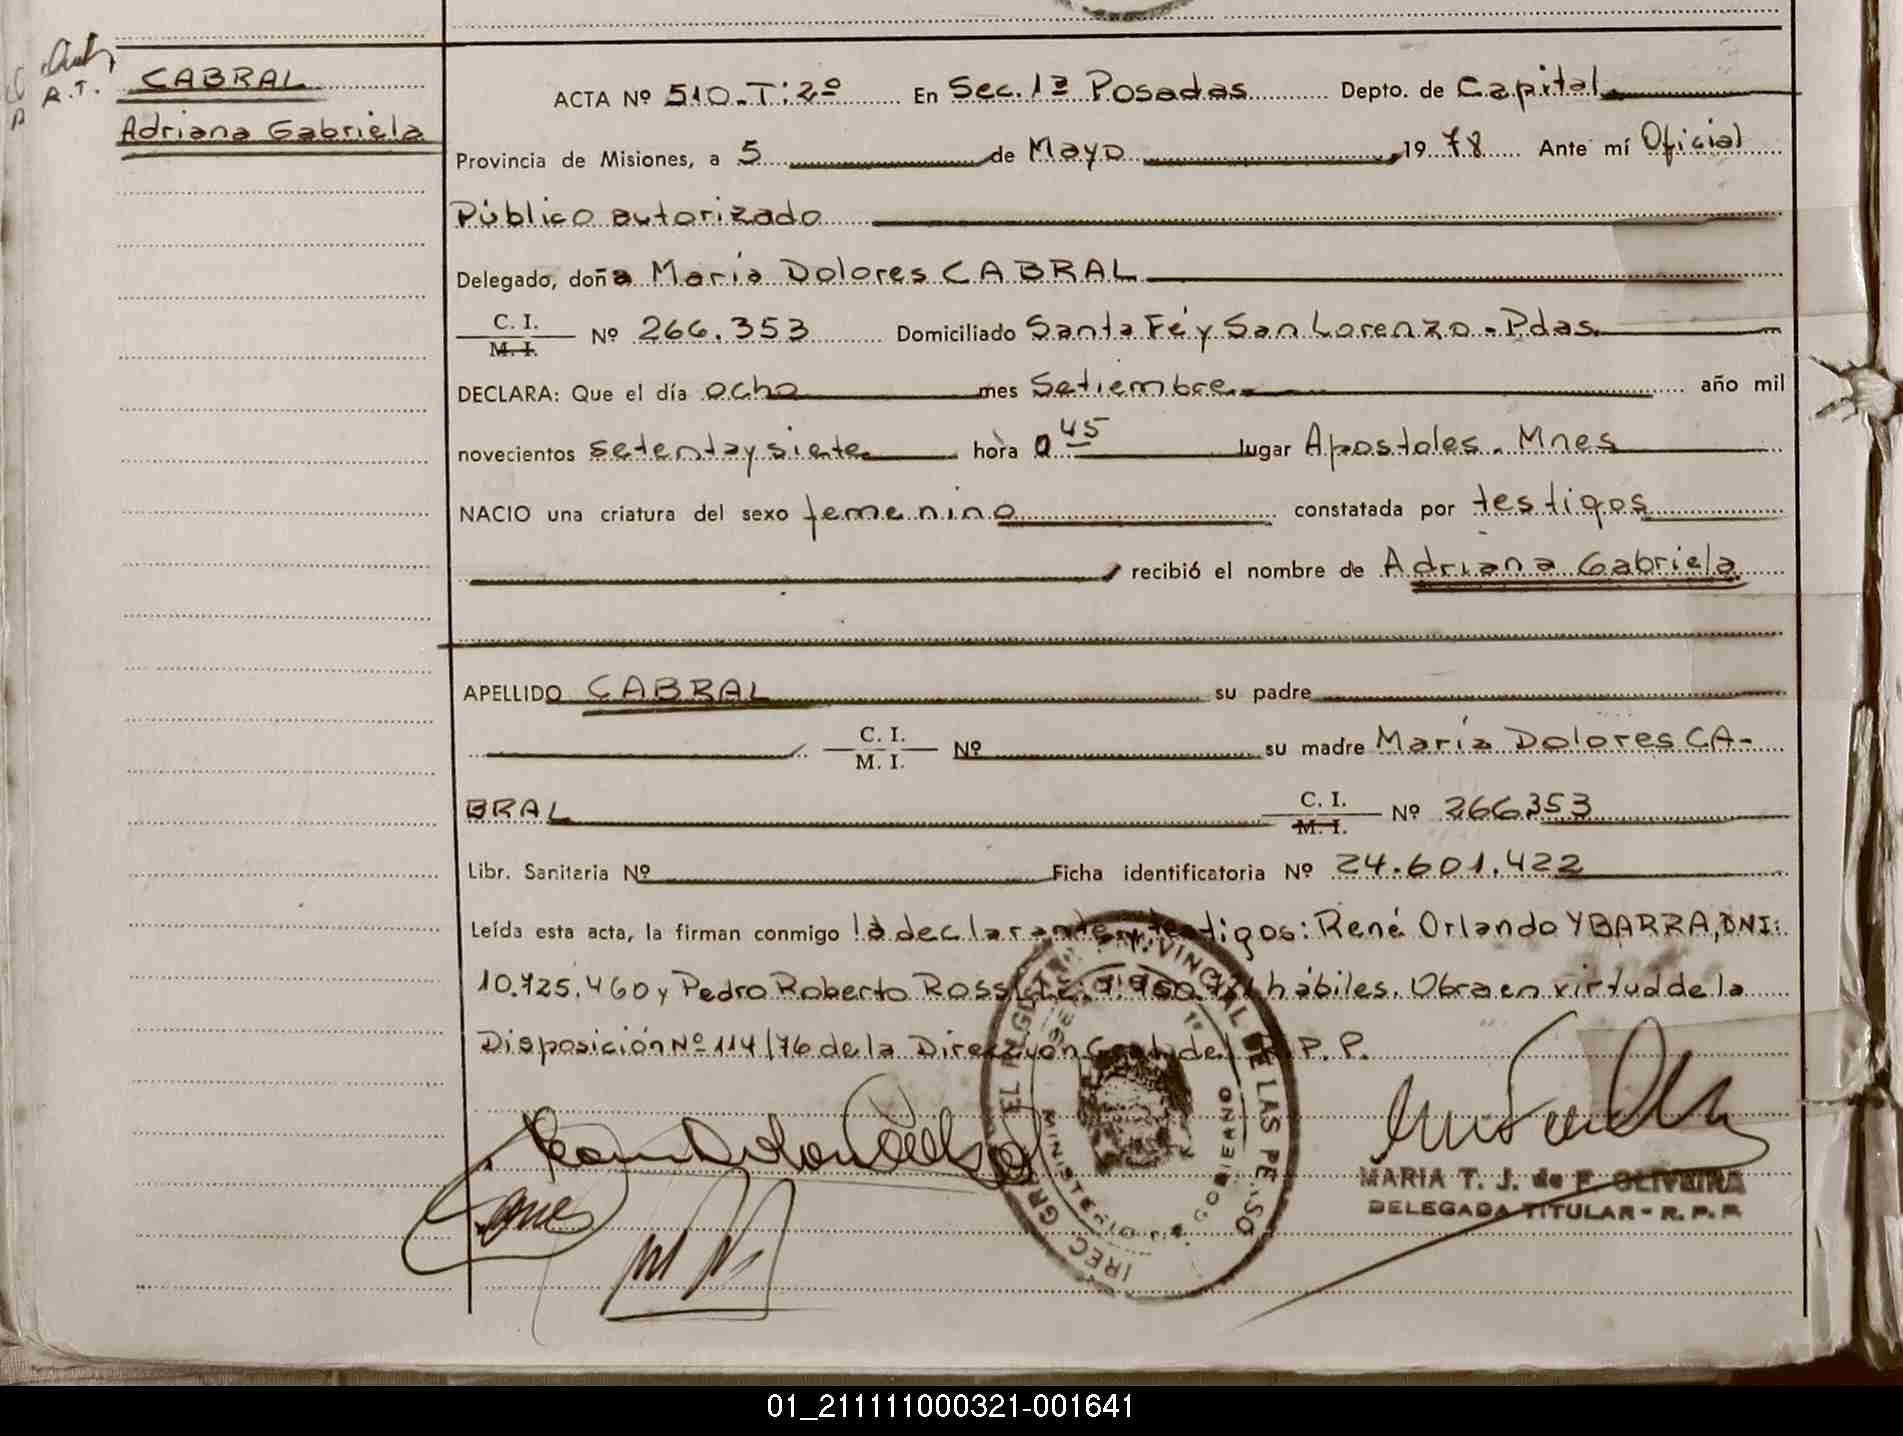 A.T.
CABRAL
Adriana Gabriela
ACTA Nº 510-T:2º En Sec. 1ª Posadas Depto. de Capital
Provincia de Misiones, a 5 de Mayo 1978 Ante mí Oficial
Público autorizado
Delegado, doña María Dolores CABRAL
C. I.
M. I. Nº 266.353 Domiciliado Santa Fé y San Lorenzo - Pdas.
DECLARA: Que el día ocho mes Setiembre año mil
novecientos setenta y siete hora 0 45 lugar Apostoles. Mnes
NACIO una criatura del sexo femenino constatada por testigos
recibió el nombre de Adriana Gabriela
APELLIDO CABRAL su padre
C. I.
M. I. Nº su madre María Dolores CA-
BRAL C. I.
M. I. Nº 266353
Libr. Sanitaria Nº Ficha identificatoria Nº 24.601.422
Leída esta acta, la firman conmigo la declarante y testigos: René Orlando YBARRA, DNI:
10.725.460 y Pedro Roberto hábiles. Obra en virtud de la
Disposición Nº 114/76 de la Dirección Gral. del R.P.P.
MINISTERIO DE GOBIERNO
MARIA T. J. de F. OLIVEIRA
DELEGADA TITULAR - R. P. P.
01_211111000321-001641